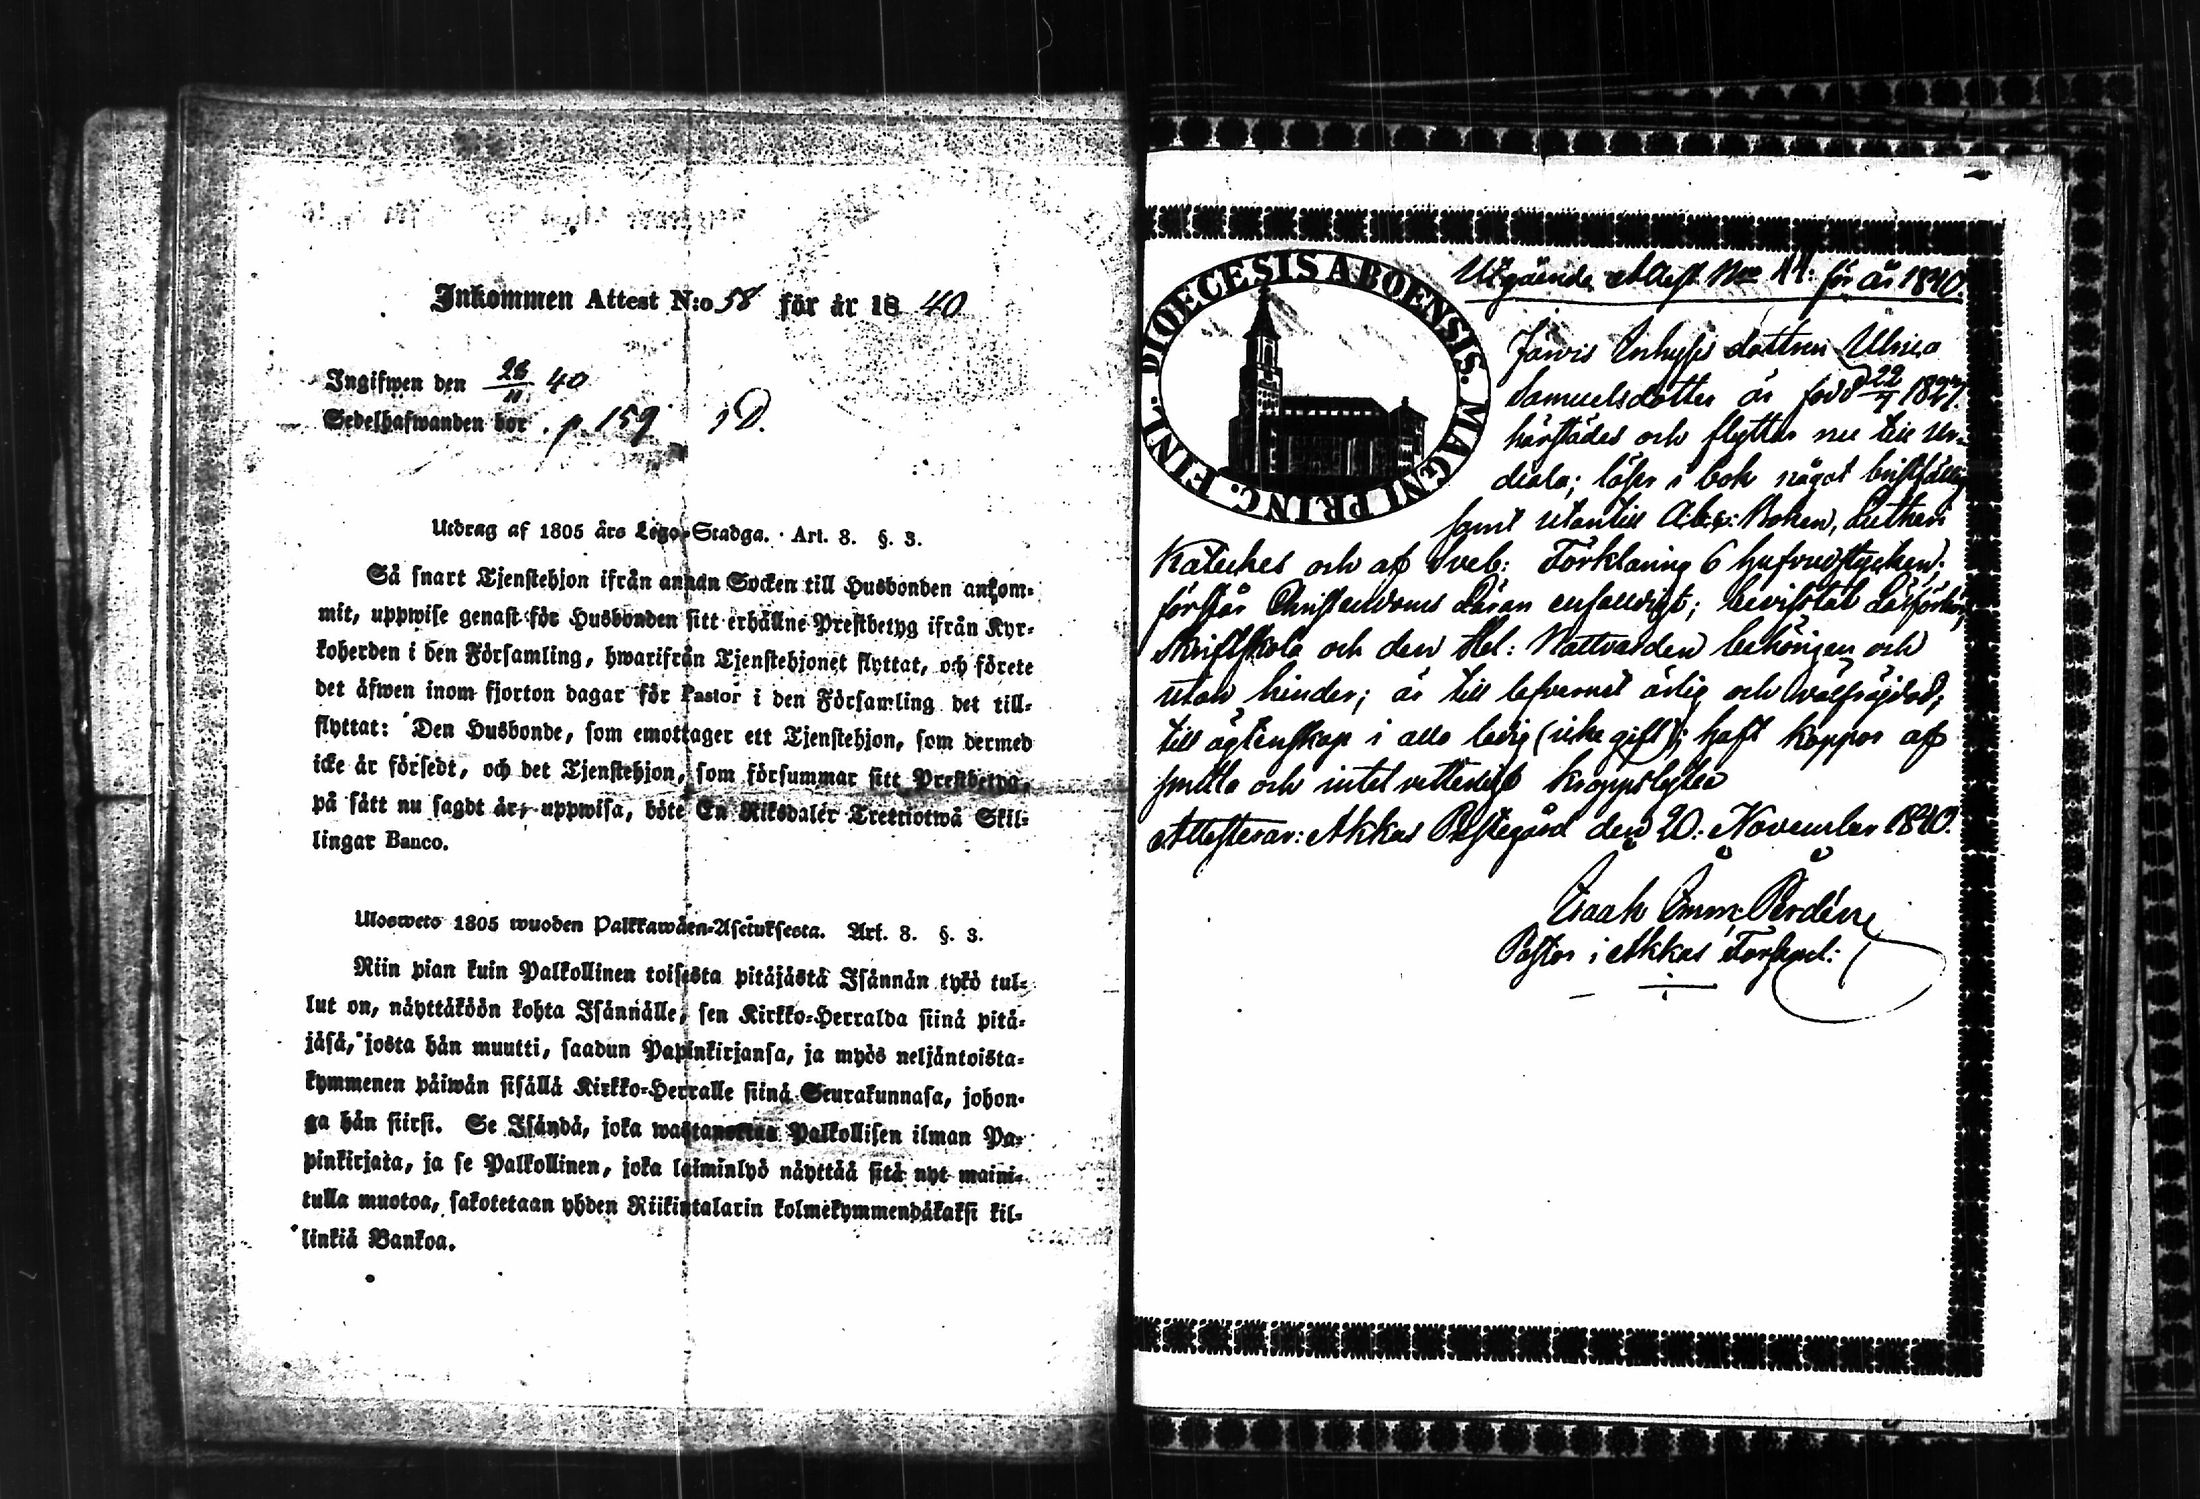 Inkommen Attest N:o 58 för år 1840
Ingifwen den 28/11 40
Sedelhafwanden bor p 159
Utdrag af 1805 års Lego-Stadga. Art. 8. §. 3.
Så snart Tjenstehjon ifrån annan Socken till Husbonden ankom-
mit, uppwise genast för Husbonden sitt erhållne Prestbetyg ifrån Kyr-
koherden i den Församling, hwarifrån Tjenstehjonet flyttat, och förete
det äfwen inom fjorton dagar för Pastor i den Församling det till-
flyttat: Den Husbonde, som emottager ett Tjenstehjon, som dermed
icke är försedt, och det Tjenstehjon, som försummar sitt Prestbetyg,
på sätt nu sagdt är, uppwisa, böte En Riksdaler Trettiotwå Skil-
lingar Banco.
Uloswets 1805 wuoden Palkkawäen-Asetuksesta. Art. 8. §. 3.
Niin pian kuin Palkollinen toisesta pitäjästä Isännän tykö tul-
lut on, näyttäköön kohta Isännälle, sen Kirkko-Herralda siinä pitä-
jäsä, josta hän muutti, saadun Papinkirjansa, ja myös neljäntoista-
kymmenen päiwän sisällä Kirkko-Herralle siinä Seurakunnasa, johon-
ga hän siirsi. Se Isändä, joka wastanottaa Palkollisen ilman Pa-
pinkirjata, ja se Palkollinen, joka laiminlyö näyttää sitä nyt maini-
tulla muotoa, sakotetaan yhden Riikintalarin kolmekymmendäkaksi kil-
linkiä Bankoa.
DIOECESIS ABOENSIS. MAGNI PRINC. FINL.
Utgående Attest No 44: för år 1840.
Järvis Inhyses dottren Ulrica
Samuelsdotter är född 22/4 1827.
härstädes och flyttar nu till Ur-
diala; läser i bok något bristfällig
samt utantill A:b:c: Boken, Lutheri
Kateches och af Sveb: Förklaring 6 hufvudstycken;
förstår Christendoms Läran enfaldigt; bevistat Läsförhör,
Skriftskola och den Hel: Nattvarden behörigen och
utan hinder; är till lefvernet ärlig och välfräjdad;
till ägtenskap i allo ledig (icke gift); haft koppor af
smitta och intet vetterligt kroppslyte
Attesterar: Akkas Prestegård den 20: November 1840.
Isaak Emm: Perdén
Pastor i Akkas Församl: